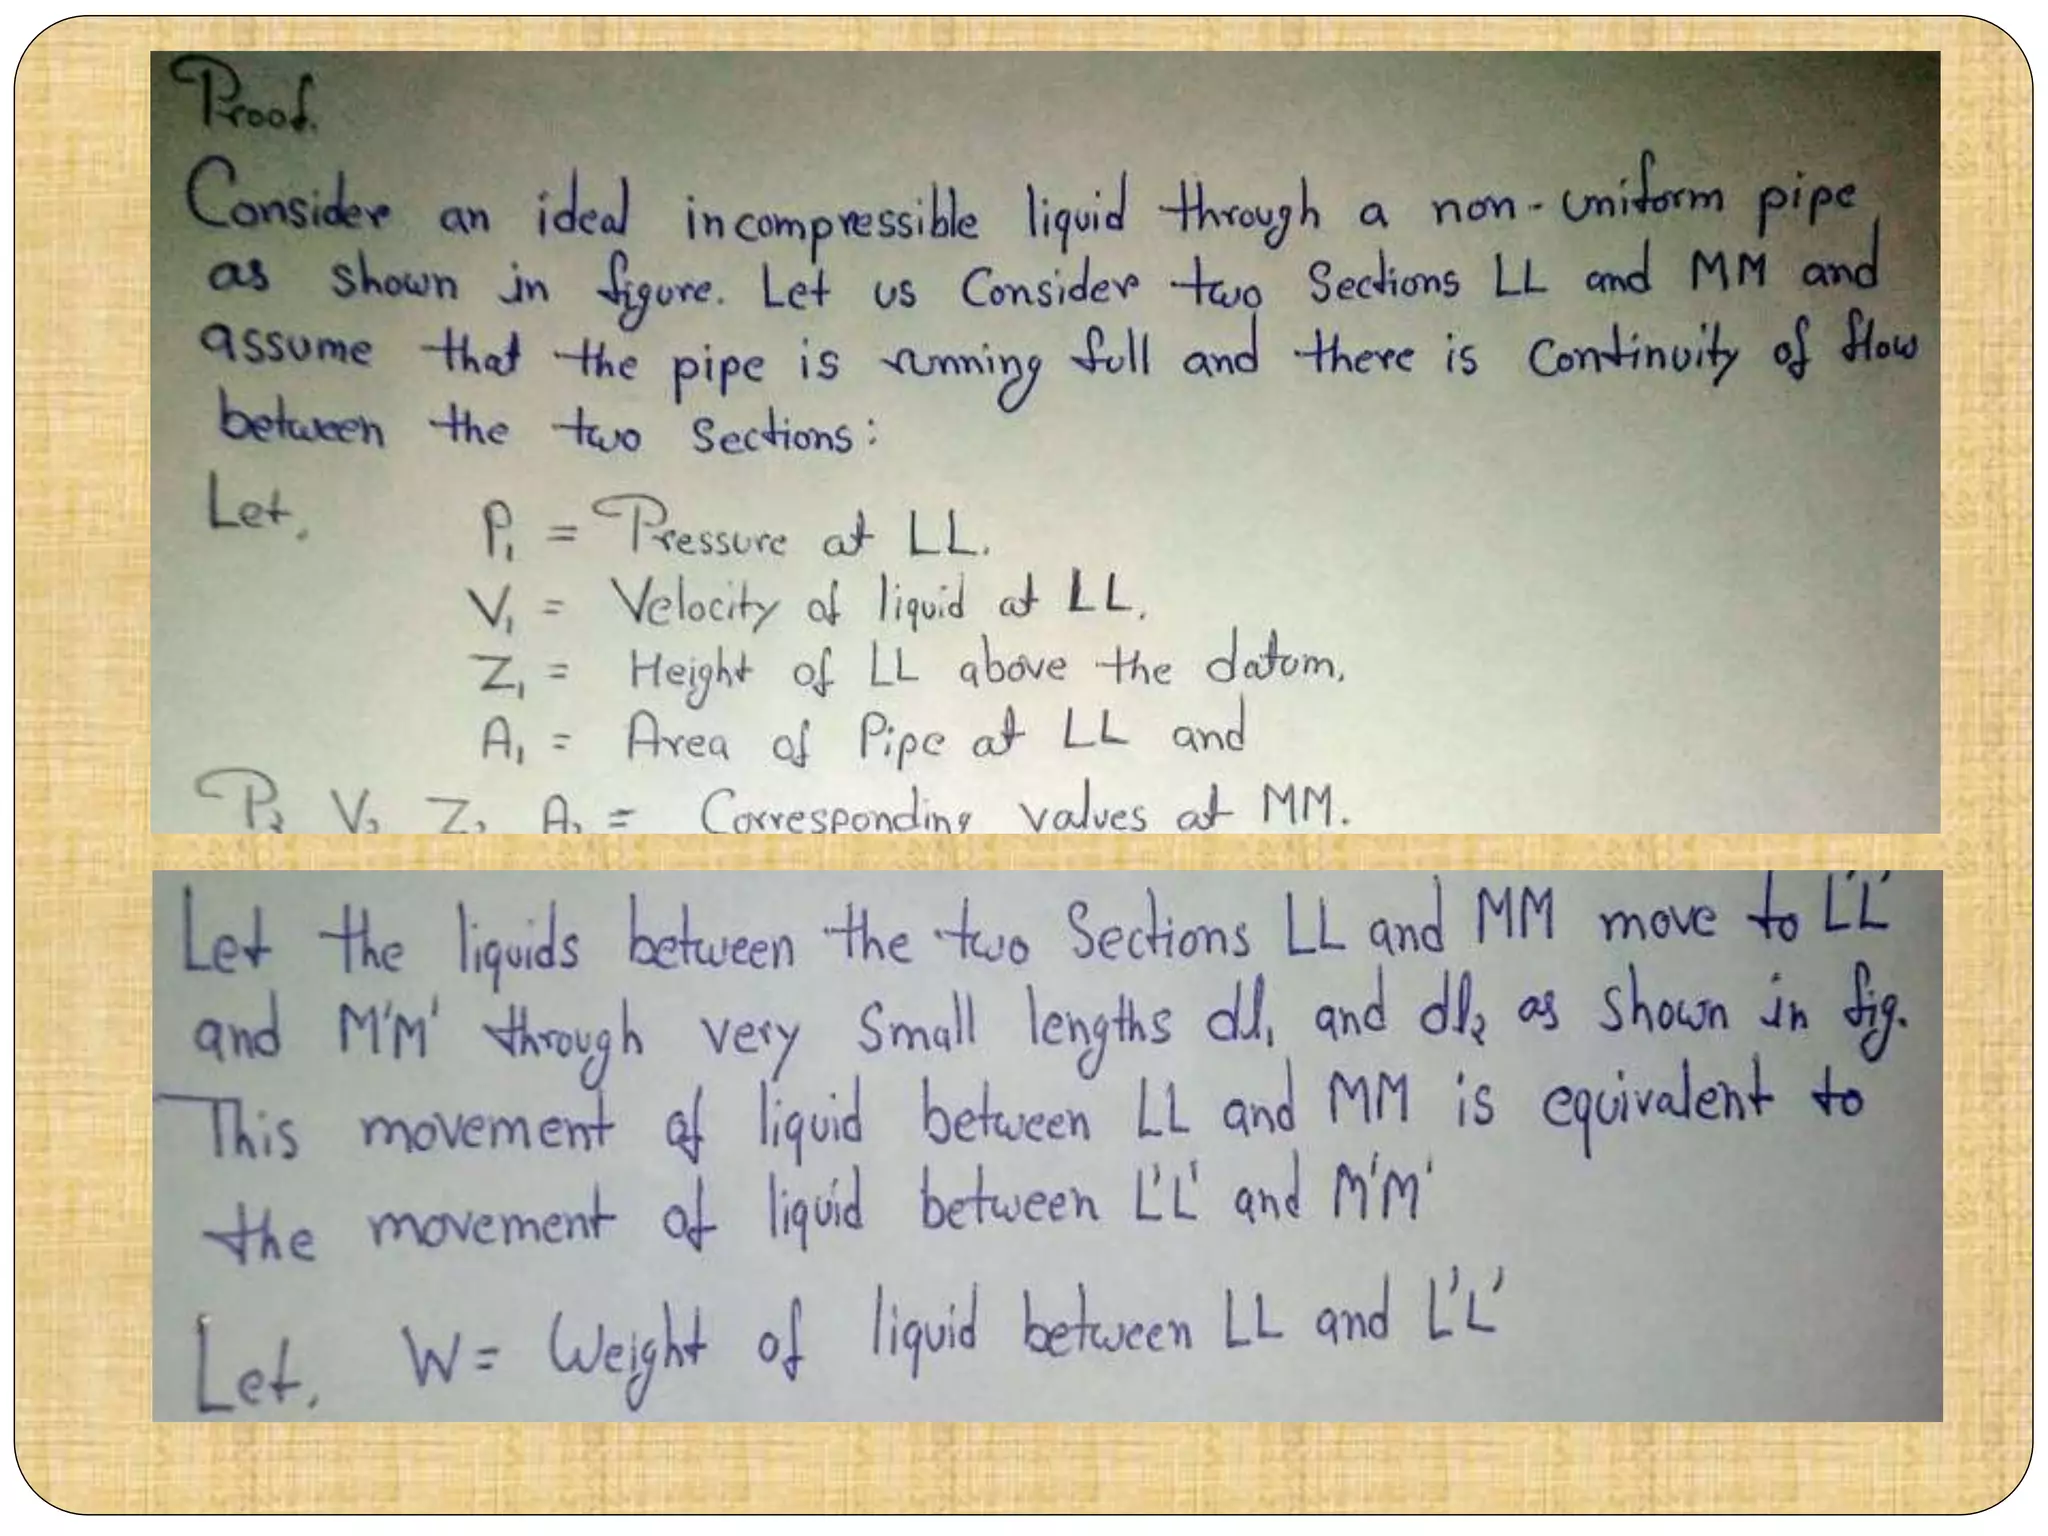 Proof.
Consider an ideal incompressible liquid through a non-uniform pipe
as shown in figure. Let us Consider two Sections LL and MM and
assume that the pipe is running full and there is Continuity of flow
between the two Sections:
Let, P₁ = Pressure at LL.
V₁ = Velocity of liquid at LL.
Z₁ = Height of LL above the datum.
A₁ = Area of Pipe at LL and
P₂ V₂ Z₂ A₂ = Corresponding values at MM.
Let the liquids between the two Sections LL and MM move to L'L'
and M'M' through very Small lengths dl₁ and dl₂ as shown in fig.
This movement of liquid between LL and MM is equivalent to
the movement of liquid between L'L' and M'M'
Let, W = Weight of liquid between LL and L'L'